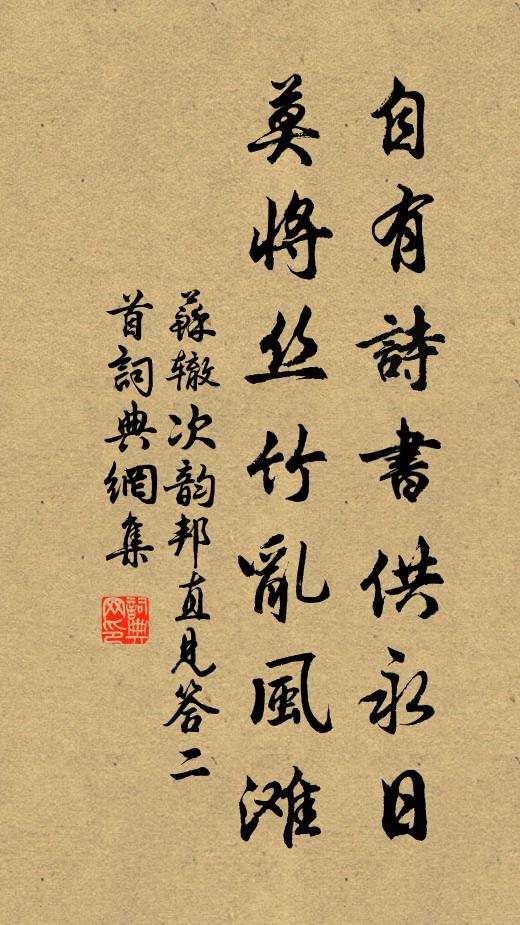 自有詩書供永日
莫將丝竹亂風滩
蘇辙次韵邦直見答二
首詞典網集
詞典
网印